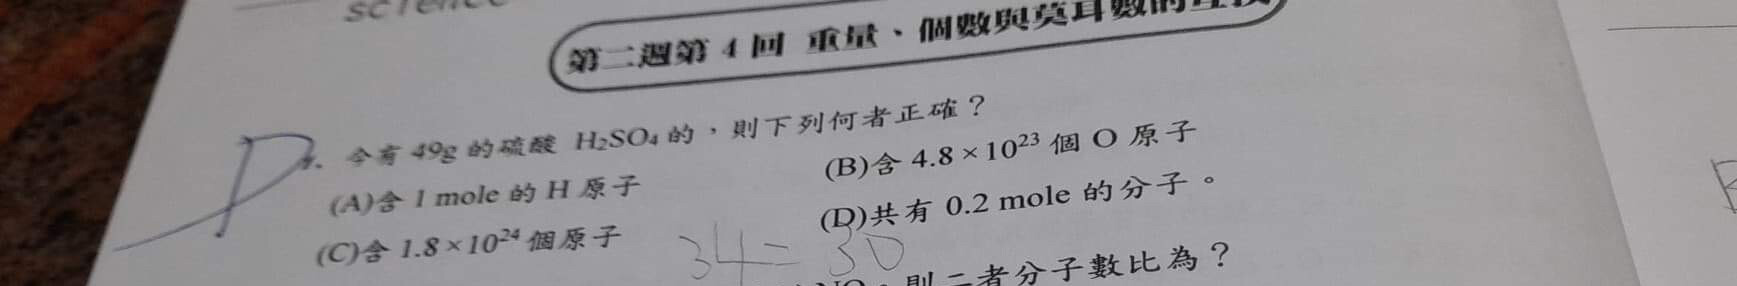 science
第二週第 4 回 重量、個數與莫耳數的互換
D
1. 今有 49g 的硫酸 H₂SO₄ 的，則下列何者正確？
(A)含 1 mole 的 H 原子 (B)含 4.8 × 10²³ 個 O 原子
(C)含 1.8 × 10²⁴ 個原子 (D)共有 0.2 mole 的分子。
34 = 30
則二者分子數比為？